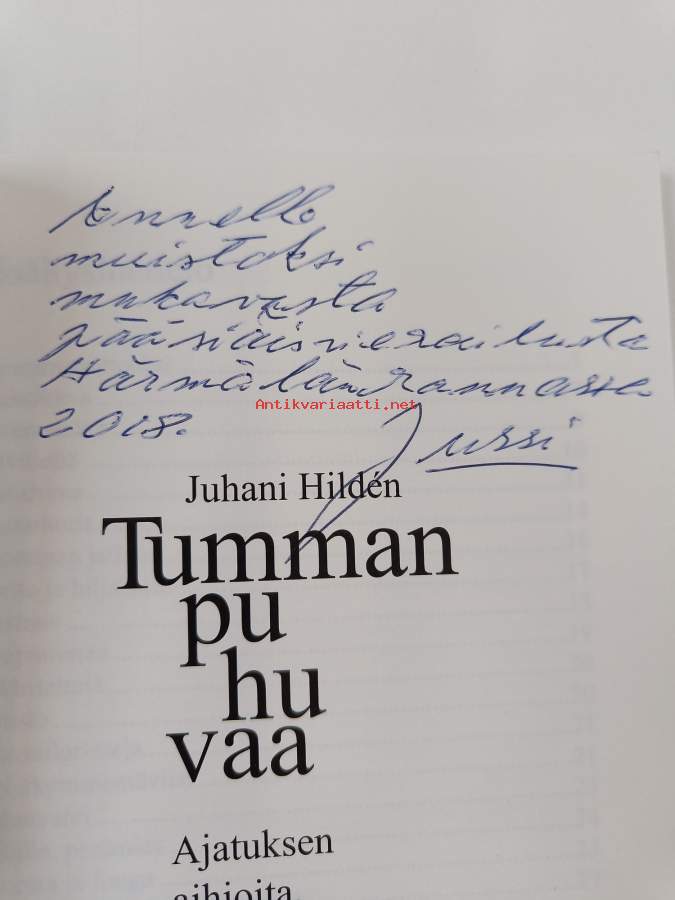 Annelle
muistoksi
mukavasta
pääsiäisvierailusta
Härmälänrannassa
2018.
Jussi
Antikvariaatti.net
Juhani Hildén
Tumman
pu
hu
vaa
Ajatuksen
aihioita